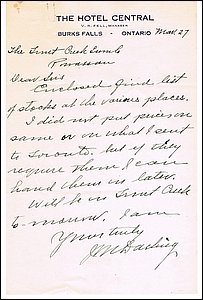 THE HOTEL CENTRAL
BURKS FALLS - ONTARIO Mar 27
The Trout Creek Lumb
Dear Sirs
Enclosed find list
of stocks at the various places.
I did not put prices on
same or on what I sent
to Toronto. but if they
require them I can
hand them in later.
Will be in Trout Creek
to-morrow. I am
Yours truly